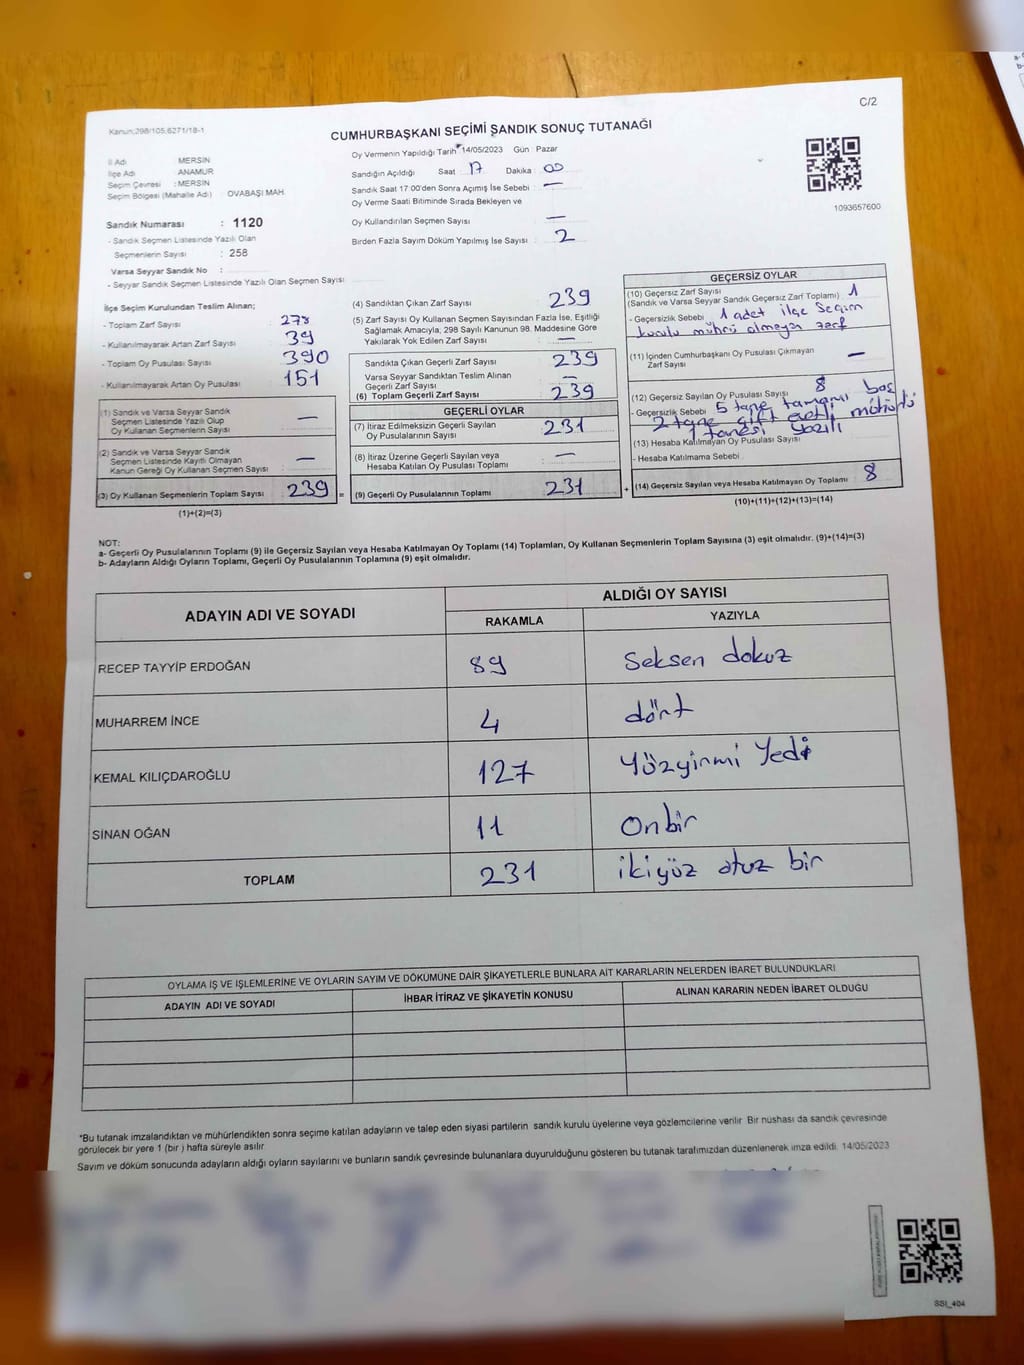 C/2
Kanun:298/105,6271/18-1
CUMHURBAŞKANI SEÇİMİ SANDIK SONUÇ TUTANAĞI
İl Adı MERSİN
İlçe Adı ANAMUR
Seçim Çevresi : MERSİN
Seçim Bölgesi (Mahalle Adı) OVABAŞI MAH.
Sandık Numarası : 1120
- Sandık Seçmen Listesinde Yazılı Olan
Seçmenlerin Sayısı : 258
Varsa Seyyar Sandık No :
- Seyyar Sandık Seçmen Listesinde Yazılı Olan Seçmen Sayısı :
Oy Vermenin Yapıldığı Tarih 14/05/2023 Gün Pazar
Sandığın Açıldığı Saat 17 Dakika 00
Sandık Saat 17:00'den Sonra Açımış İse Sebebi : —
Oy Verme Saati Bitiminde Sırada Bekleyen ve
Oy Kullandırılan Seçmen Sayısı —
Birden Fazla Sayım Döküm Yapılmış İse Sayısı : 2
1093657600
İlçe Seçim Kurulundan Teslim Alınan;
- Toplam Zarf Sayısı : 278
- Kullanılmayarak Artan Zarf Sayısı : 39
- Toplam Oy Pusulası Sayısı : 390
- Kullanılmayarak Artan Oy Pusulası : 151
(1) Sandık ve Varsa Seyyar Sandık
Seçmen Listesinde Yazılı Olup
Oy Kullanan Seçmenlerin Sayısı : —
(2) Sandık ve Varsa Seyyar Sandık
Seçmen Listesinde Kayıtlı Olmayan
Kanun Gereği Oy Kullanan Seçmen Sayısı : —
(3) Oy Kullanan Seçmenlerin Toplam Sayısı : 239 =
(1)+(2)=(3)
(4) Sandıktan Çıkan Zarf Sayısı : 239
(5) Zarf Sayısı Oy Kullanan Seçmen Sayısından Fazla İse, Eşitliği
Sağlamak Amacıyla; 298 Sayılı Kanunun 98. Maddesine Göre
Yakılarak Yok Edilen Zarf Sayısı : —
Sandıkta Çıkan Geçerli Zarf Sayısı : 239
Varsa Seyyar Sandıktan Teslim Alınan
Geçerli Zarf Sayısı : —
(6) Toplam Geçerli Zarf Sayısı : 239
GEÇERLİ OYLAR
(7) İtiraz Edilmeksizin Geçerli Sayılan
Oy Pusulalarının Sayısı : 231
(8) İtiraz Üzerine Geçerli Sayılan veya
Hesaba Katılan Oy Pusulası Toplamı : —
(9) Geçerli Oy Pusulalarının Toplamı : 231 +
GEÇERSİZ OYLAR
(10) Geçersiz Zarf Sayısı
(Sandık ve Varsa Seyyar Sandık Geçersiz Zarf Toplamı) : 1
- Geçersizlik Sebebi : 1 adet ilçe Seçim
kurulu mührü olmayan zarf
(11) İçinden Cumhurbaşkanı Oy Pusulası Çıkmayan
Zarf Sayısı : —
(12) Geçersiz Sayılan Oy Pusulası Sayısı : 8
- Geçersizlik Sebebi 5 tane tamamı boş
2 tane çift mühürlü
tanesi yazılı
(13) Hesaba Katılmayan Oy Pusulası Sayısı :
- Hesaba Katılmama Sebebi :
(14) Geçersiz Sayılan veya Hesaba Katılmayan Oy Toplamı : 8
(10)+(11)+(12)+(13)=(14)
NOT:
a- Geçerli Oy Pusulalarının Toplamı (9) ile Geçersiz Sayılan veya Hesaba Katılmayan Oy Toplamı (14) Toplamları, Oy Kullanan Seçmenlerin Toplam Sayısına (3) eşit olmalıdır. (9)+(14)=(3)
b- Adayların Aldığı Oyların Toplamı, Geçerli Oy Pusulalarının Toplamına (9) eşit olmalıdır.
ADAYIN ADI VE SOYADI ALDIĞI OY SAYISI
RAKAMLA YAZIYLA
RECEP TAYYİP ERDOĞAN 89 Seksen dokuz
MUHARREM İNCE 4 dört
KEMAL KILIÇDAROĞLU 127 Yüzyirmi Yedi
SİNAN OĞAN 11 Onbir
TOPLAM 231 ikiyüz otuz bir
OYLAMA İŞ VE İŞLEMLERİNE VE OYLARIN SAYIM VE DÖKÜMÜNE DAİR ŞİKAYETLERLE BUNLARA AİT KARARLARIN NELERDEN İBARET BULUNDUKLARI
ADAYIN ADI VE SOYADI İHBAR İTİRAZ VE ŞİKAYETİN KONUSU ALINAN KARARIN NEDEN İBARET OLDUĞU
*Bu tutanak imzalandıktan ve mühürlendikten sonra seçime katılan adayların ve talep eden siyasi partilerin sandık kurulu üyelerine veya gözlemcilerine verilir. Bir nüshası da sandık çevresinde
görülecek bir yere 1 (bir ) hafta süreyle asılır
Sayım ve döküm sonucunda adayların aldığı oyların sayılarını ve bunların sandık çevresinde bulunanlara duyurulduğunu gösteren bu tutanak tarafımızdan düzenlenerek imza edildi. 14/05/2023
SSI_404